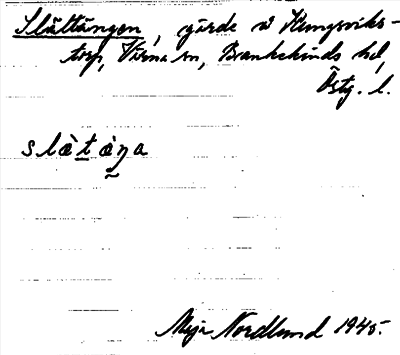 Slåttängen, gärde å Kungsviks-
torp, Värna sn, Bankekinds hd,
Östg. l.
slàt̲àŋa
Maja Nordlund 1945.